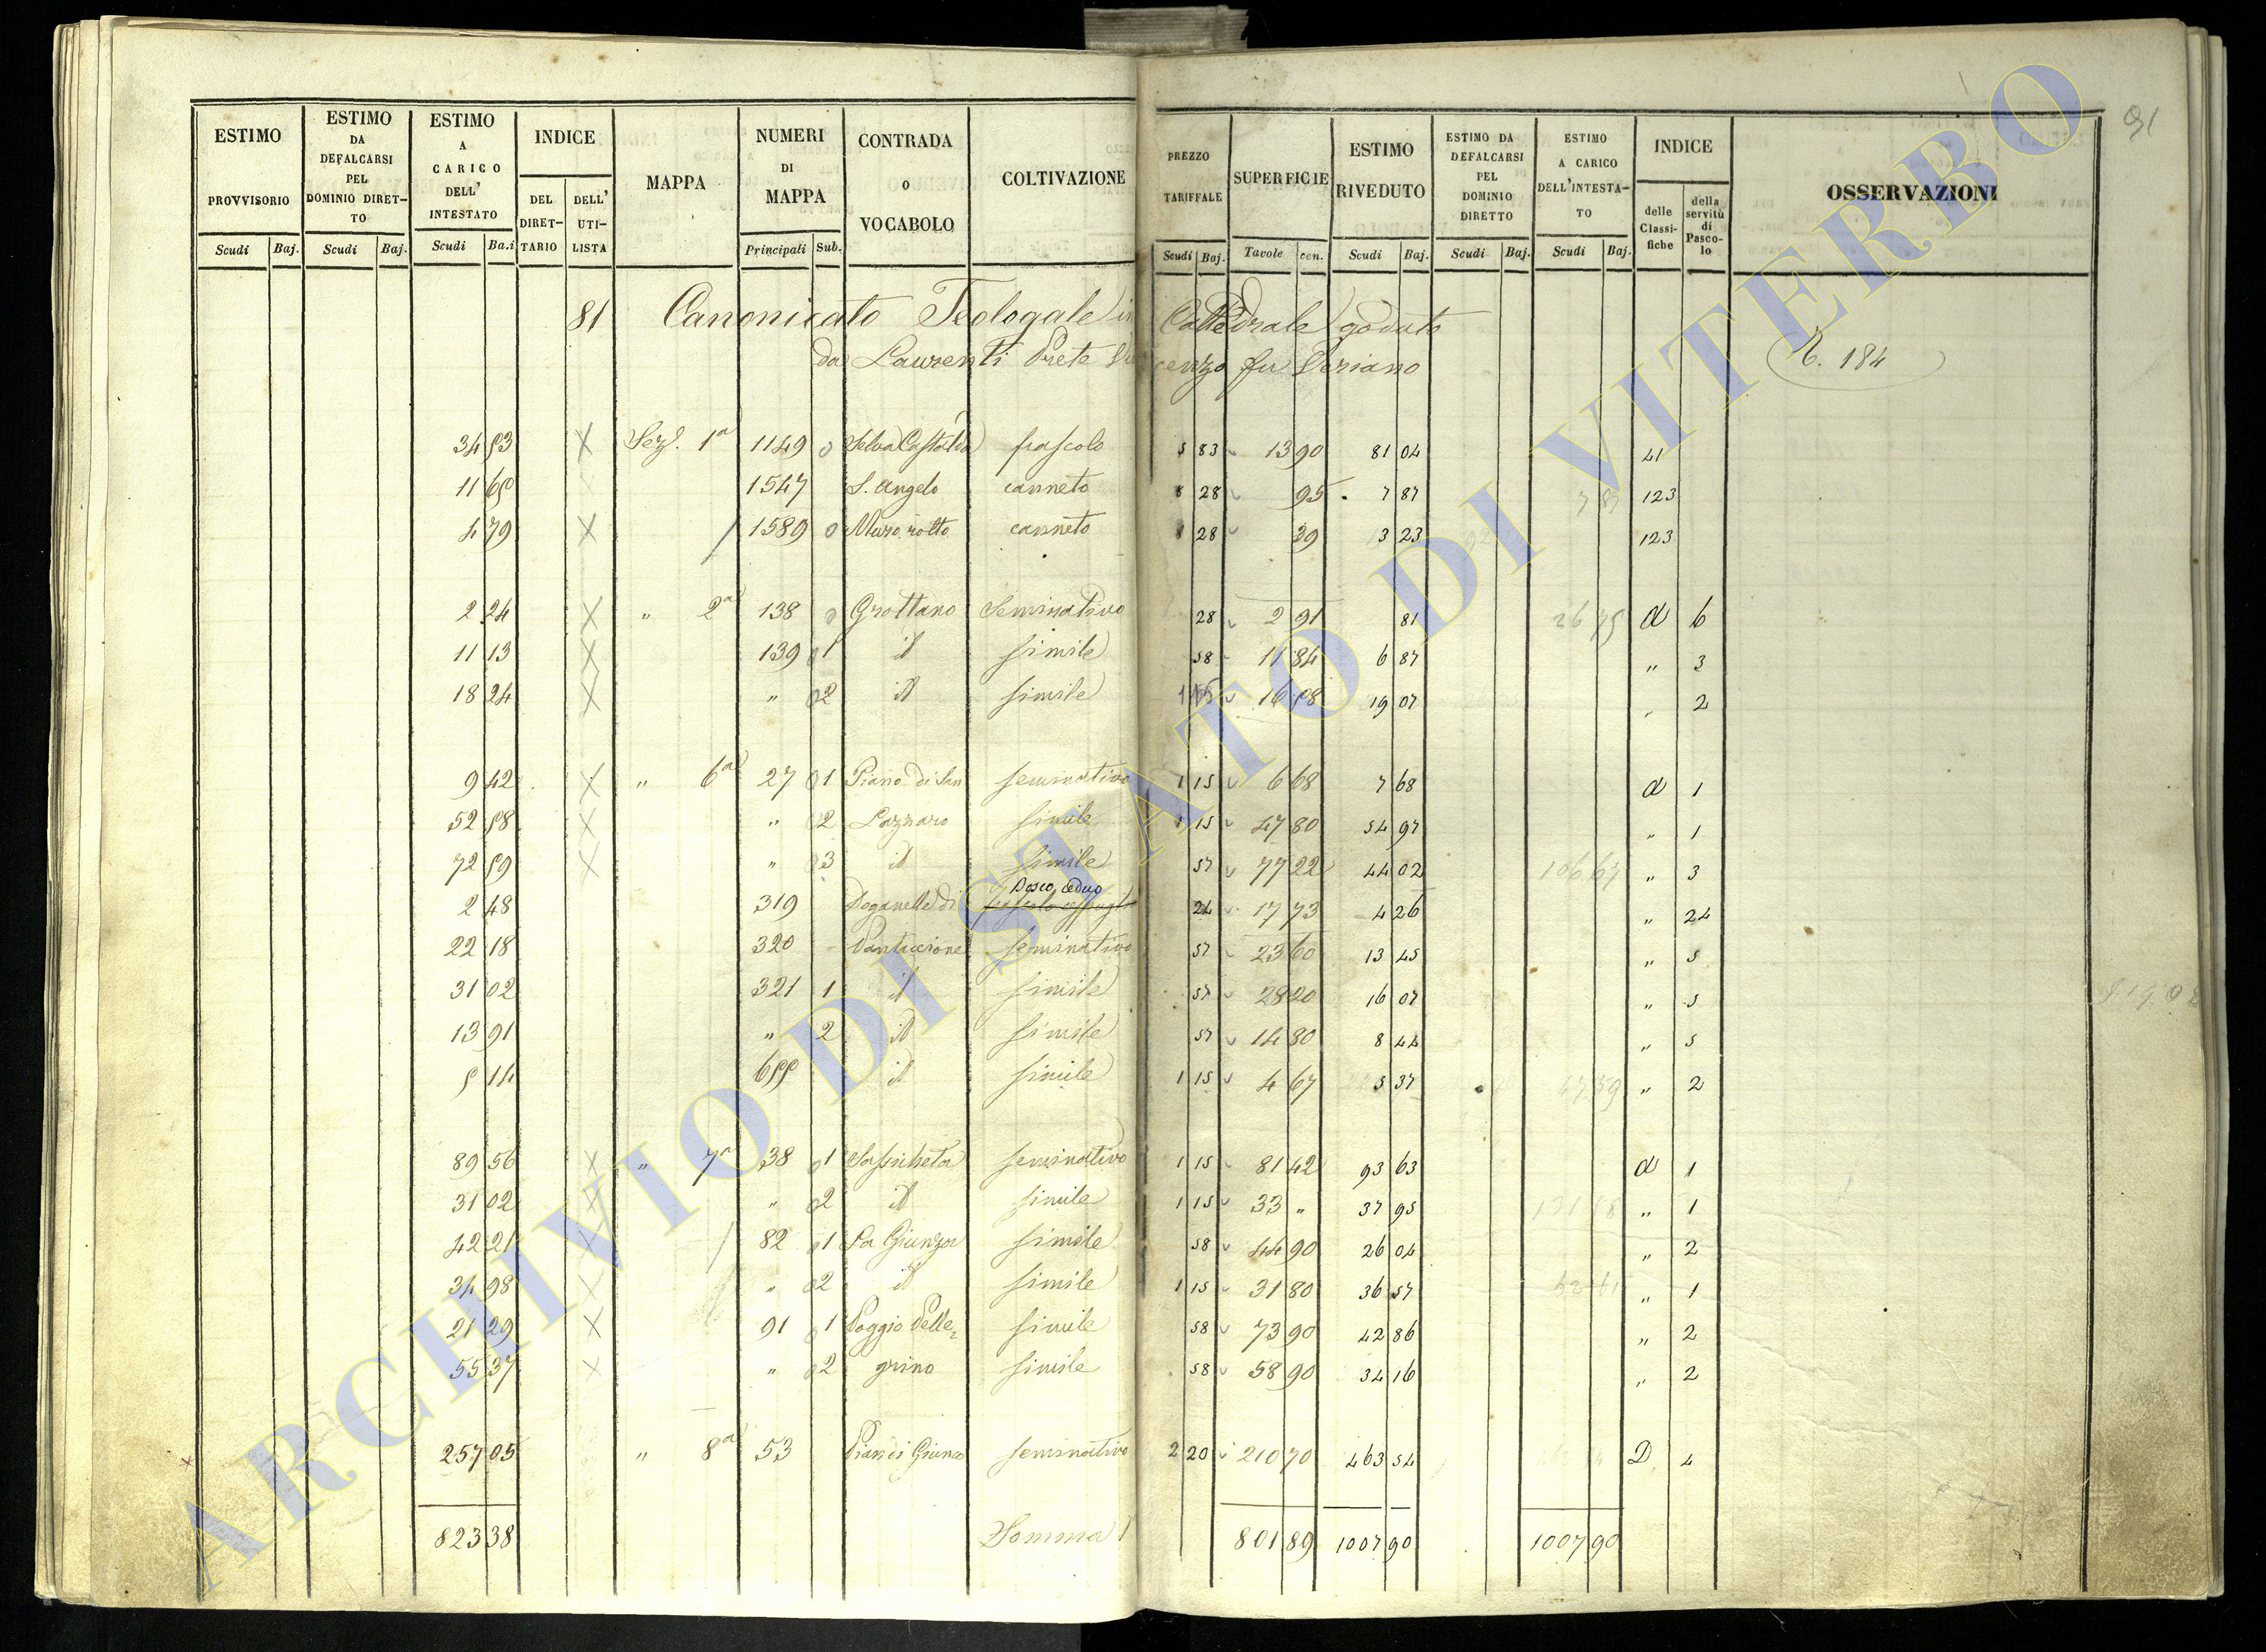 91
ESTIMO PROVVISORIO Scudi Baj.
ESTIMO DA DEFALCARSI PEL DOMINIO DIRET-TO Scudi Baj.
ESTIMO A CARICO DELL' INTESTATO Scudi Ba.i
INDICE DEL DIRET-TARIO DELL' UTI-LISTA
MAPPA
NUMERI DI MAPPA Principali Sub.
CONTRADA O VOCABOLO
COLTIVAZIONE
PREZZO TARIFFALE Scudi Baj.
SUPERFICIE Tavole cen.
ESTIMO RIVEDUTO Scudi Baj.
ESTIMO DA DEFALCARSI PEL DOMINIO DIRETTO Scudi Baj.
ESTIMO A CARICO DELL'INTESTA-TO Scudi Baj.
INDICE delle Classi-fiche della servitù di Pasco-lo
OSSERVAZIONI
81 Canonicato Teologale in Cattedrale goduto
da Laurenti Prete Vincenzo fu Soriano
R. 184
34 53 X Sez. 1a 1149 0 Selva pascolo 5 83 13 90 81 04 41
11 65 1547 S. Angelo canneto 8 28 95 7 87 7 87 123
4 79 X 1589 0 Muro rotto canneto 8 28 39 3 23 123
2 24 X " 2a 138 0 Grottano Seminativo 28 2 91 81 26 75 a 6
11 13 X 139 0 1 id simile 58 11 84 6 87 " 3
18 24 X " 0 2 id simile 1 15 16 58 19 07 " 2
9 42 X " 6a 27 0 1 Piano di San seminativo 1 15 6 68 7 68 a 1
52 58 X " 0 2 Lazzaro simile 1 15 47 80 54 97 " 1
72 59 X " 0 3 id simile 57 77 22 44 02 106 67 " 3
Bosco ceduo
2 48 319 Doganelle di 24 17 73 4 26 " 24
22 18 320 Pantaccione seminativo 57 23 60 13 45 " 5
31 02 321 1 id simile 57 28 20 16 07 " 5
13 91 " 2 id simile 57 14 80 8 44 " 5
5 14 655 id simile 1 15 4 67 5 37 47 59 " 2
89 56 X " 7a 38 0 1 Sassicheta seminativo 1 15 81 42 93 63 a 1
31 02 X " 0 2 id simile 1 15 33 " 37 95 131 58 " 1
42 21 X 82 0 1 La Giunza simile 58 44 90 26 04 " 2
34 98 X " 0 2 id simile 1 15 31 80 36 57 " 1
21 29 X 91 0 1 Poggio Pelle- simile 58 73 90 42 86 " 2
55 37 X " 0 2 grino simile 58 58 90 34 16 " 2
257 05 " 8a 53 Pian di Giunco seminativo 2 20 210 70 463 54 D 4
823 38 Somma 801 89 1007 90 1007 90
ARCHIVIO DI STATO DI VITERBO